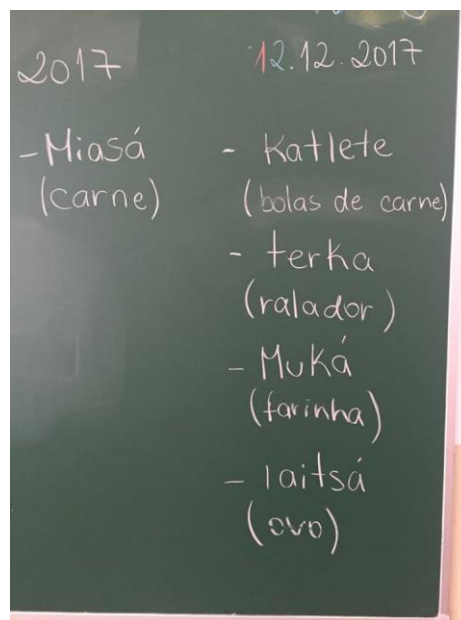 2017
- Miasá
(carne)
12.12.2017
- Katlete
(bolas de carne)
- terka
(ralador)
- Muká
(farinha)
- Iaitsá
(ovo)